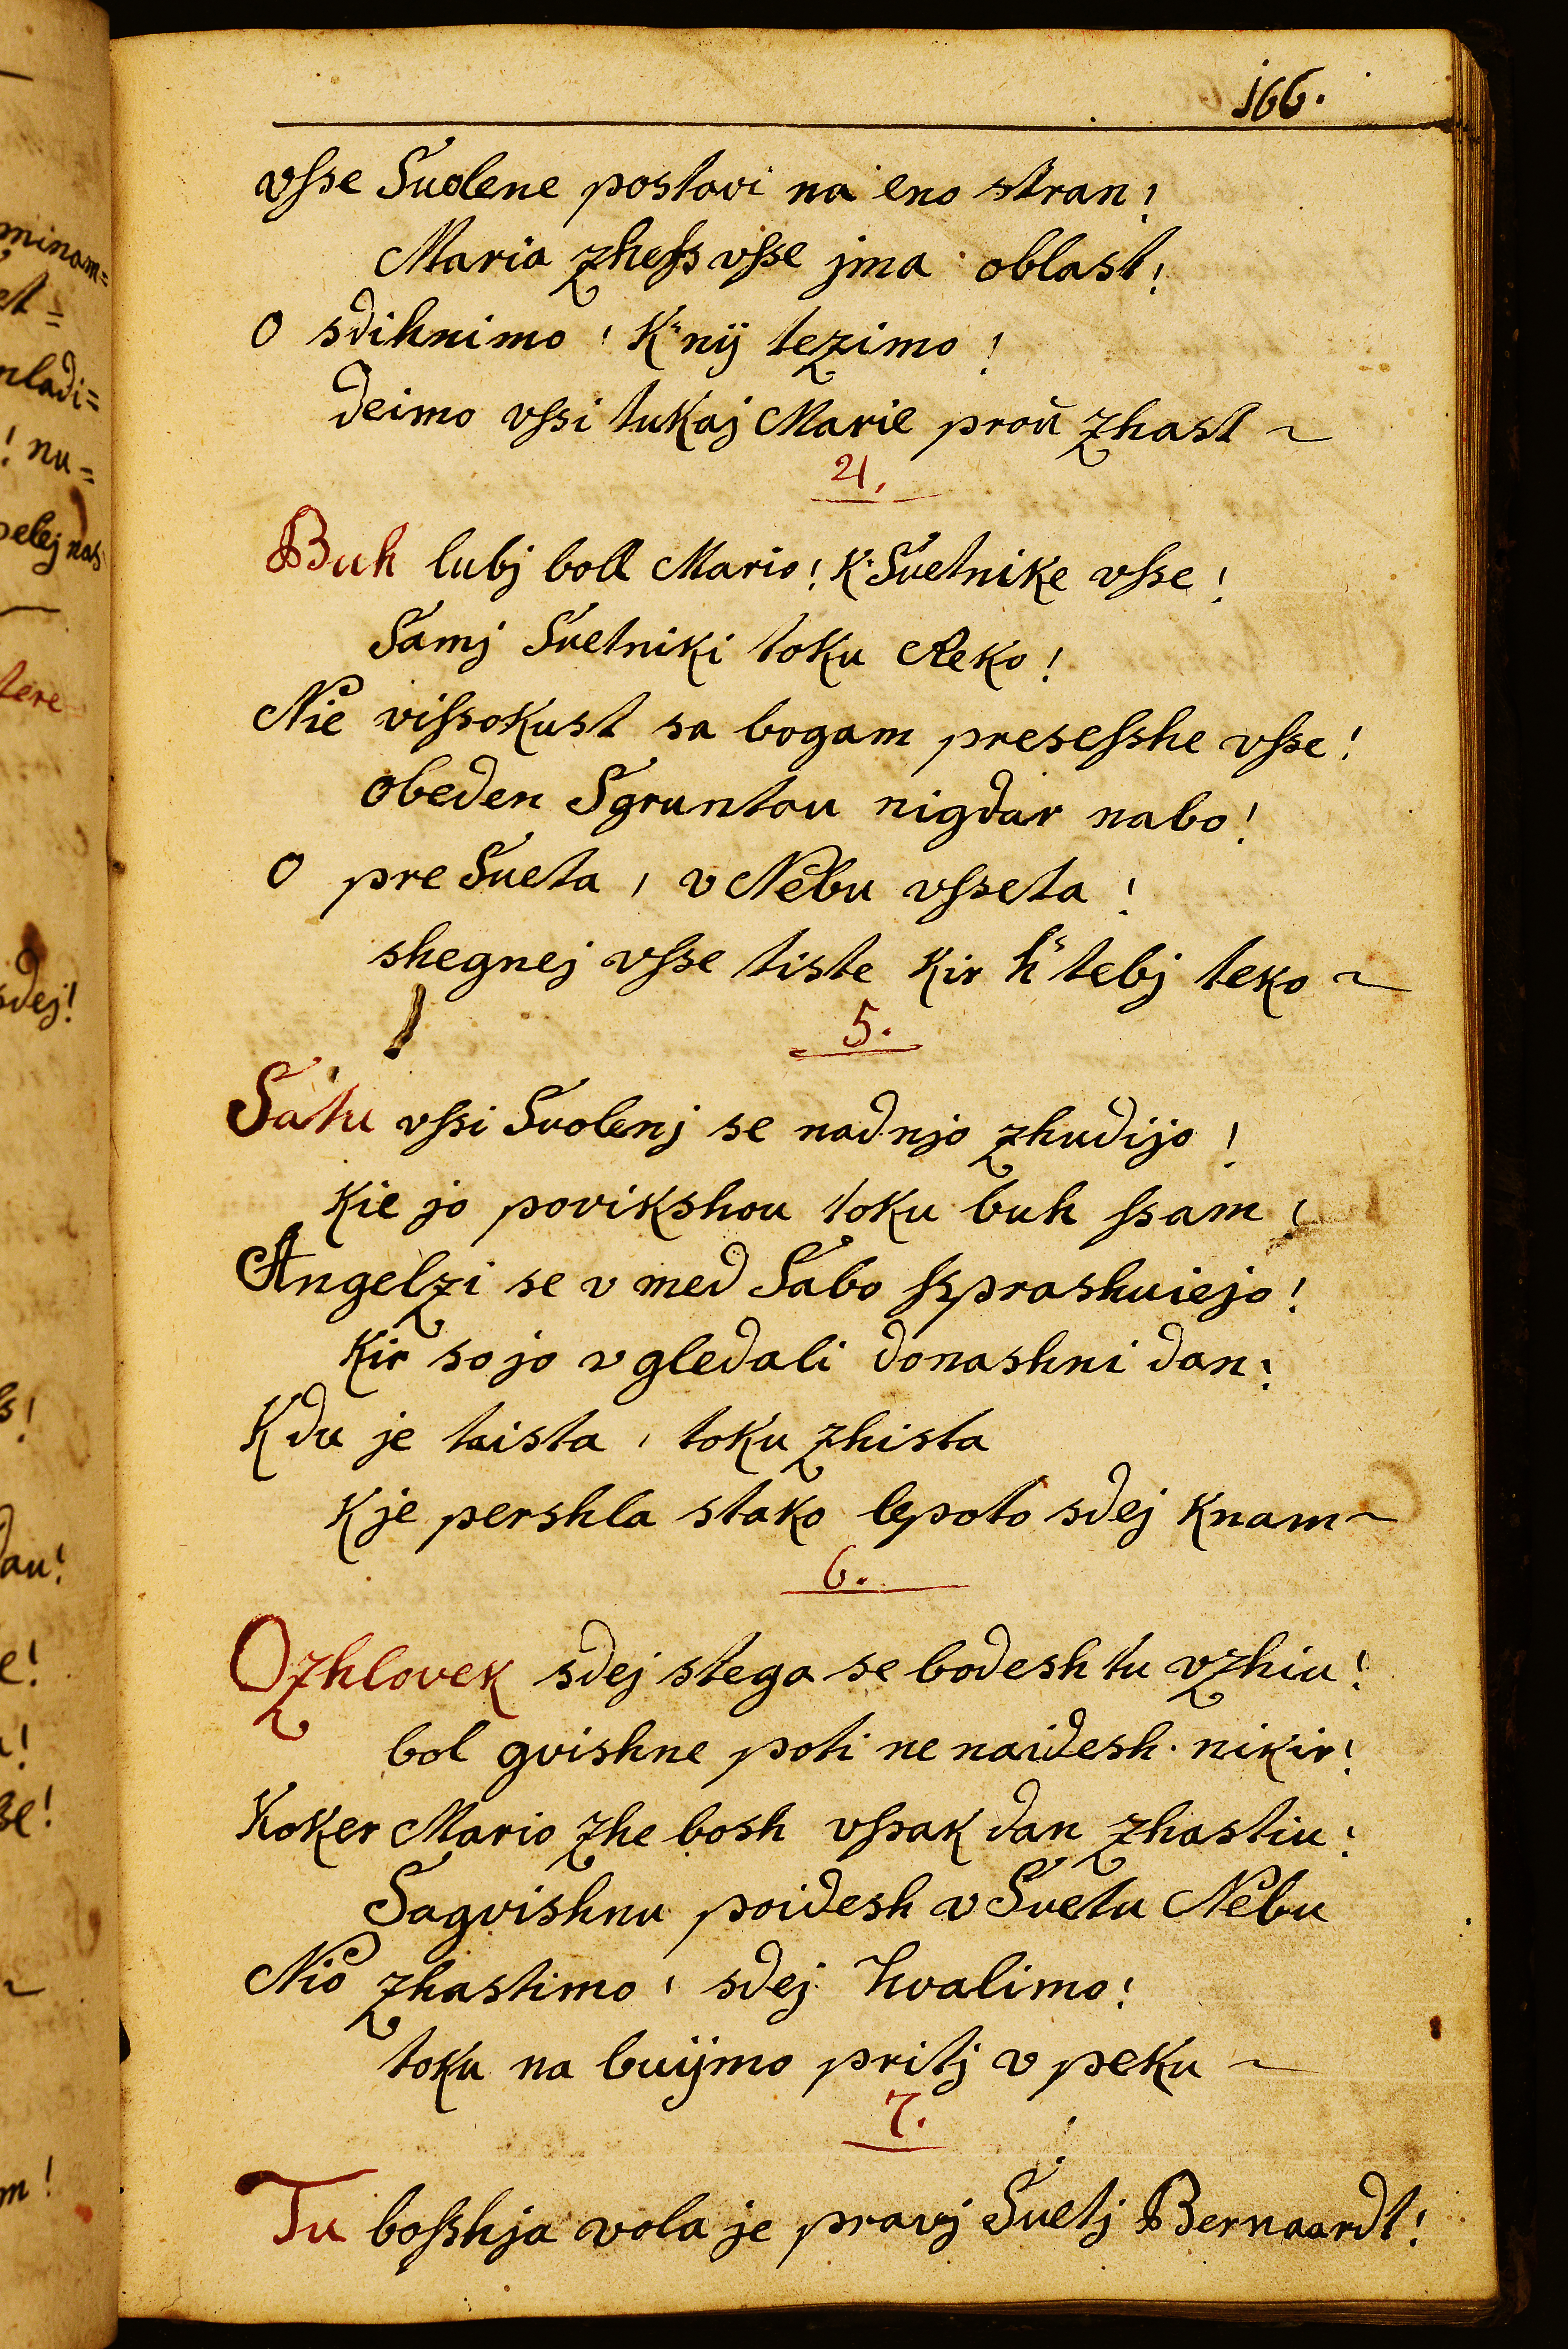 166.
vſse Suolene postavi na eno stran!
Maria zheſs vſse jma oblast!
O sdihnimo! K nÿ tezimo!
deimo vſsi tukaj Marie proŭ zhast ~
4.
Buh lubj boll Mario! K Suetnike vſse!
Samj Suetniki toku Reko!
Nie viſsokust sa bogam preseſshe vſse!
obeden Sgruntou nigdar nabo!
O pre Sueta, v Nebu vſseta!
shegnej vſse tiste Kir h tebj teko ~
5.
Satu vſsi Suolenj se nadnjo zhudijo!
Kie jo povikshou toku buh ſsam!
Angelzi se v med Sabo ſsprashuiejo!
Kir so jo v gledali donashni dan!
Kdu je taista, toku zhista
Kje pershla stako lepoto sdej Knam ~
6.
Ozhlovek sdej stega se bodesh tu vzhiu!
bol gvishne poti ne naidesh nikir!
Koker Mario zhe bosh vſsak dan zhastiu!
Sagvishnu poidesh v Suetu Nebu
Nio zhastimo! sdej hvalimo!
toku na buÿmo pritj v peku ~
7.
Tu boſshja vola je pravj Suetj Bernaardt!
minam=
et =
mladi=
! nu=
pelej nas
tere
sdej!